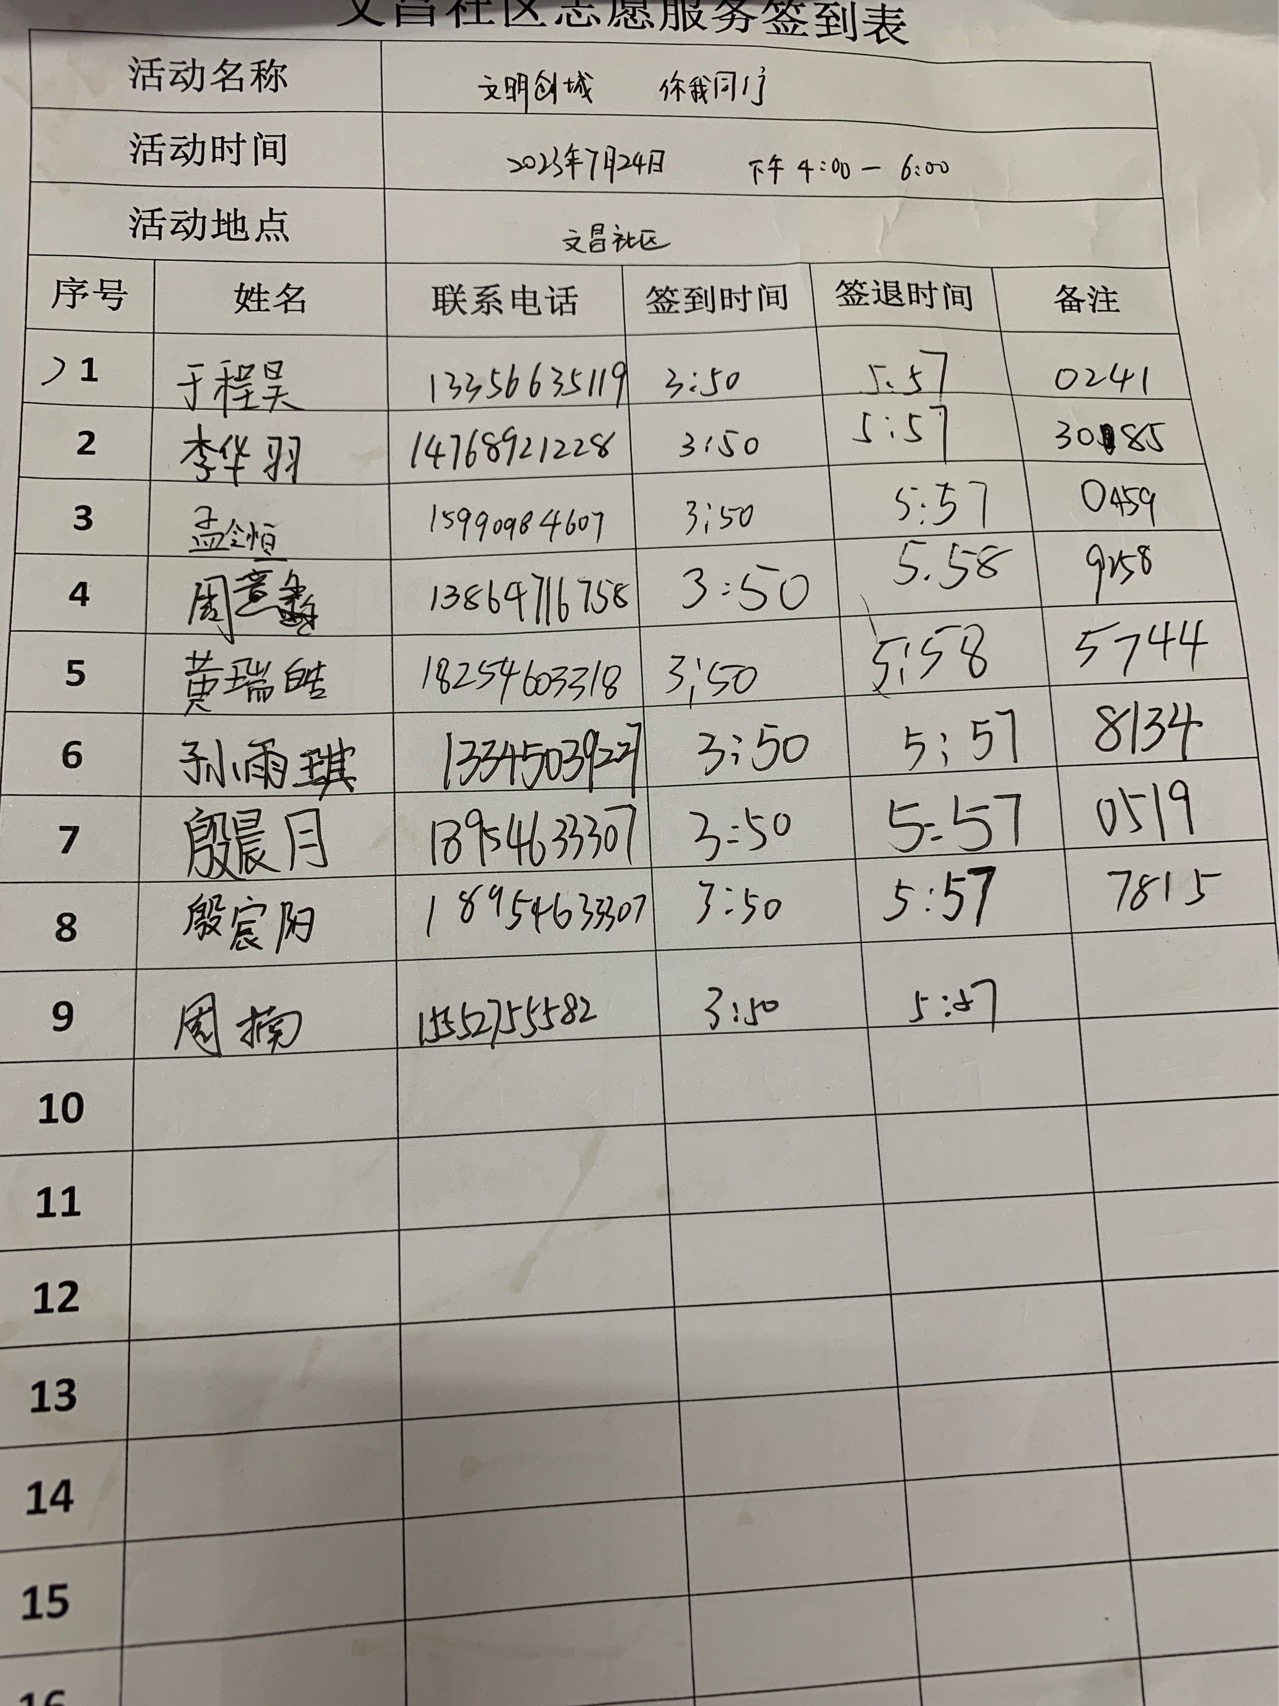 文昌社区志愿服务签到表
活动名称 文明创城 你我同行
活动时间 2023年7月24日 下午 4:00 — 6:00
活动地点 文昌社区
序号 姓名 联系电话 签到时间 签退时间 备注
1 于程昊 13356635119 3:50 5:57 0241
2 李华羽 14768921228 3:50 5:57
3 15990984607 3:50 5:57 0459
4 周意 13864716758 3:50 5.58 9258
5 黄瑞皓 18254603318 3:50 5:58 5744
6 孙雨琪 3:50 5:57 8134
7 殷晨月 18954633307 3:50 5:57 0519
8 殷宸阳 18954633307 3:50 5:57 7815
9 周楠 15552755582 3:50 5:57
10
11
12
13
14
15
16